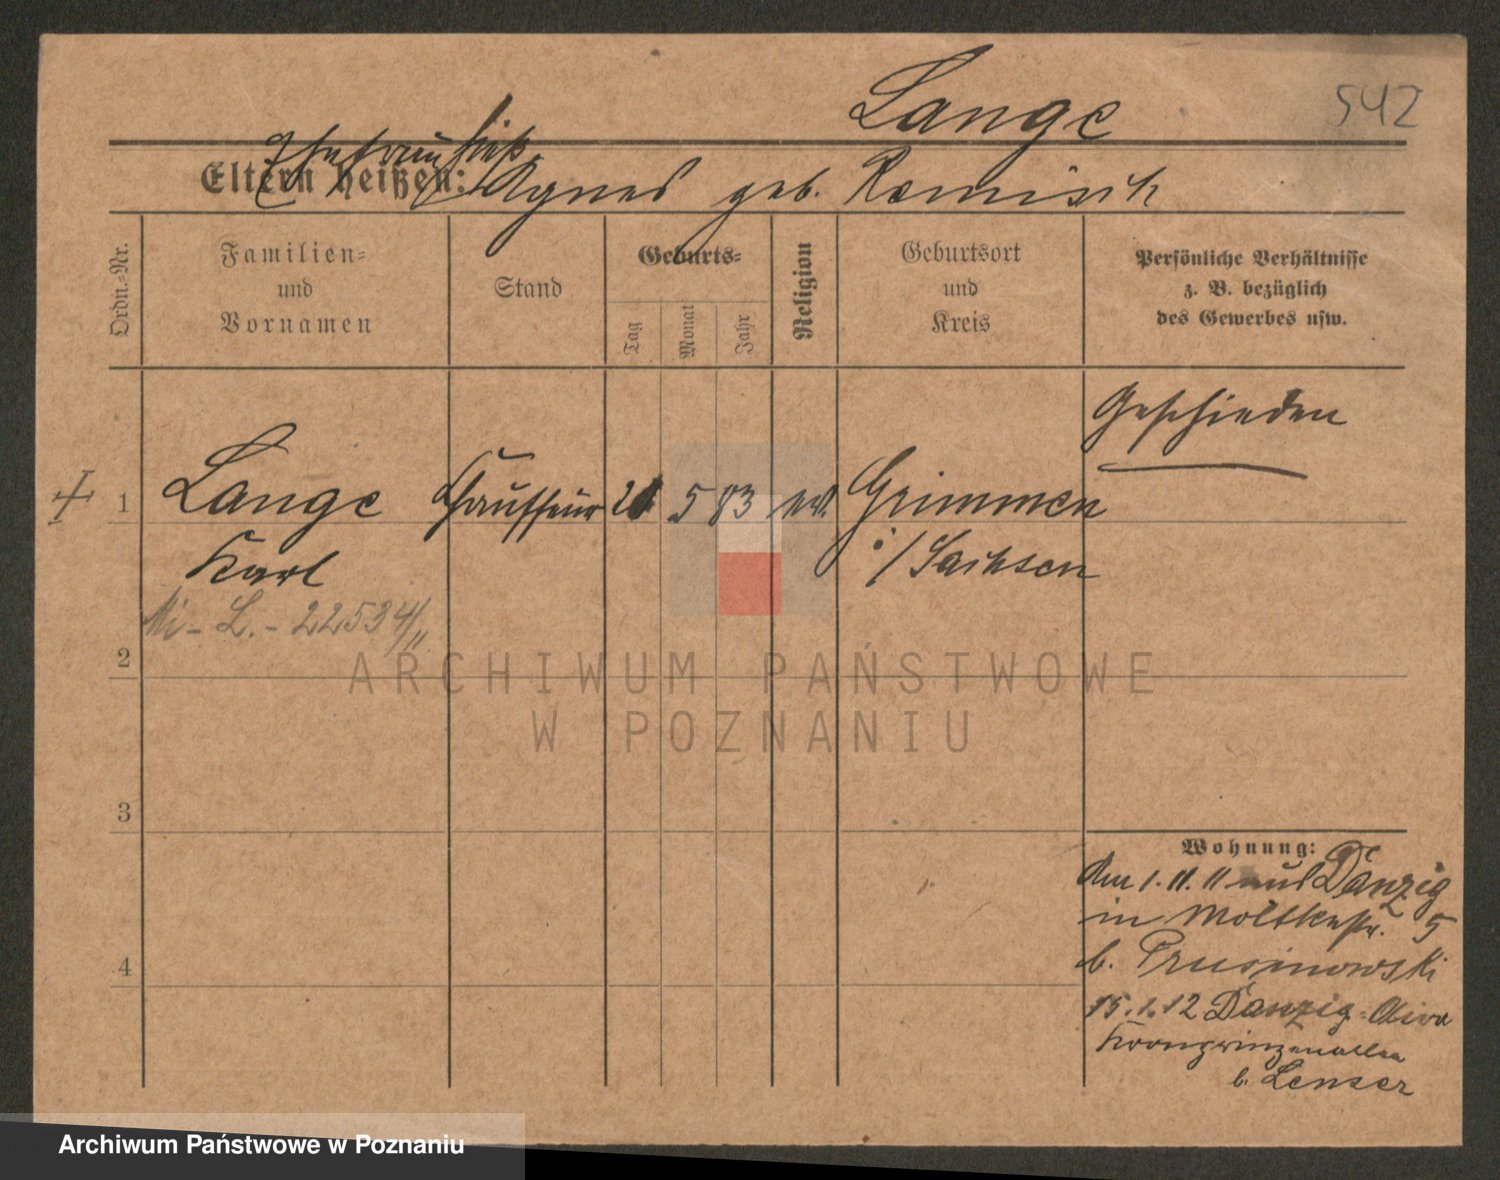 Lange
542
Ehefrau hieß
Eltern heißen: Agnes geb. Roemisch
Ordn.-Nr.
Familien-
und
Vornamen
Stand
Geburts-
Tag
Monat
Jahr
Religion
Geburtsort
und
Kreis
Persönliche Verhältnisse
z. B. bezüglich
des Gewerbes usw.
Geschieden
1 Lange Chauffeur 21 5 83 Grimmen
Karl i/Sachsen
Mi - L. - 22534/11
2
ARCHIWUM PAŃSTWOWE
W POZNANIU
3
Wohnung:
Am 1. 11. 11 aus Danzig
in Moltkestr. 5
b. Prusinowski
4
15.1.12 Danzig-Oliva
Kronprinzenallee
b. Lenser
Archiwum Państwowe w Poznaniu